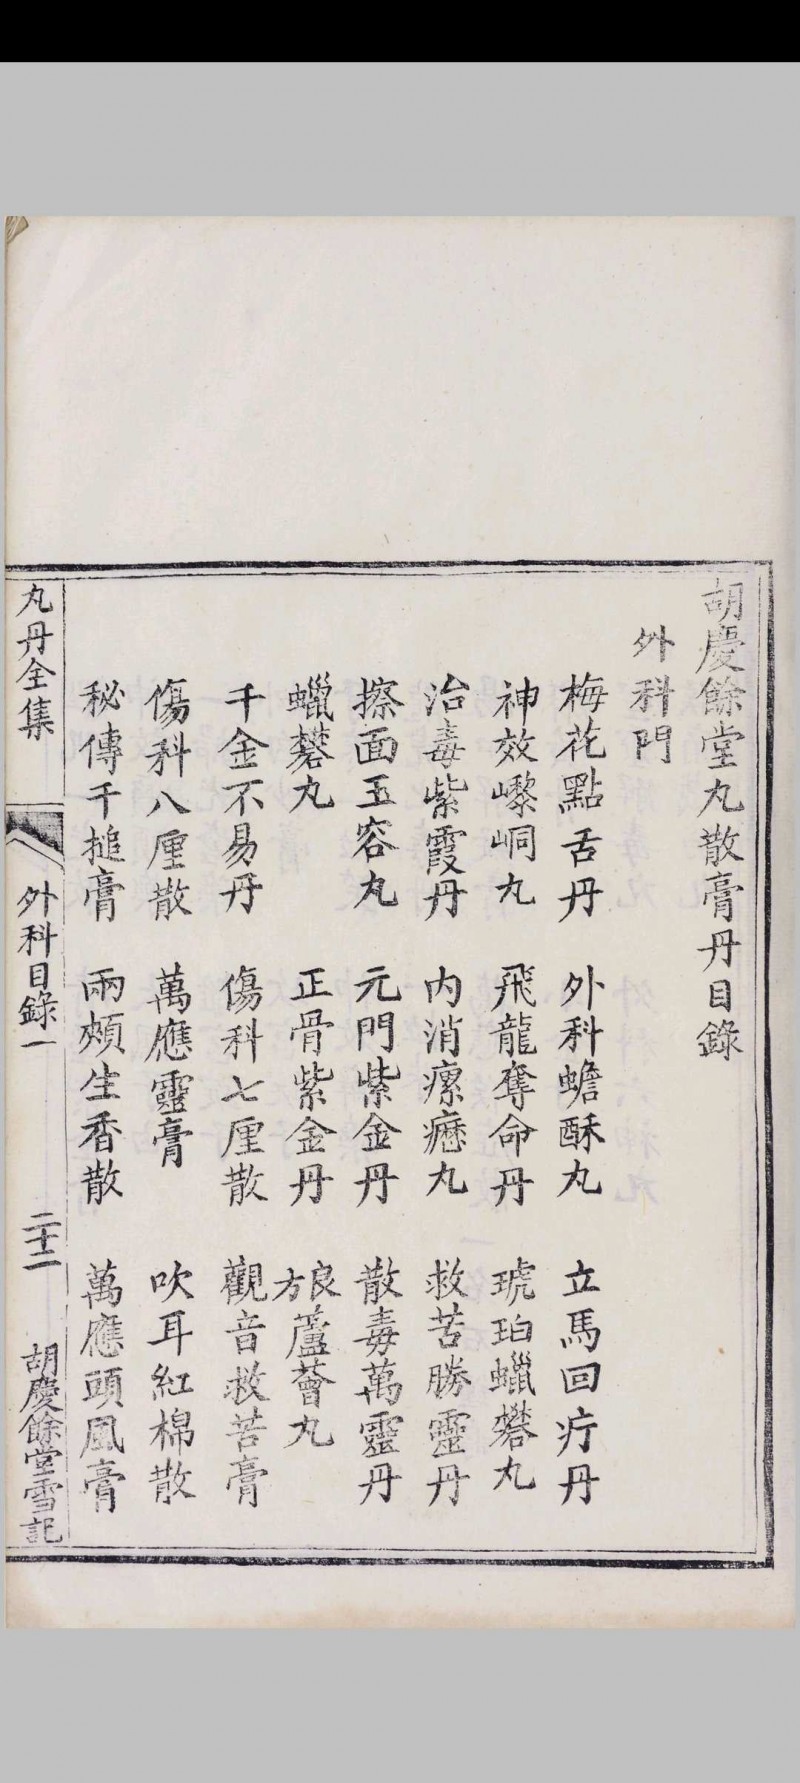 胡慶餘堂丸散膏丹目錄
外科門
梅花點舌丹 外科蟾酥丸 立馬回疔丹
神效嚟峒丸 飛龍奪命丹 琥珀蠟礬丸
治毒紫霞丹 內消瘰癧丸 救苦勝靈丹
擦面玉容丸 元門紫金丹 散毒萬靈丹
蠟礬丸 正骨紫金丹 良方蘆薈丸
千金不易丹 傷科七厘散 觀音救苦膏
傷科八厘散 萬應靈膏 吹耳紅棉散
秘傳千搥膏 兩頰生香散 萬應頭風膏
丸丹全集 外科目錄一 二十二 胡慶餘堂雪記